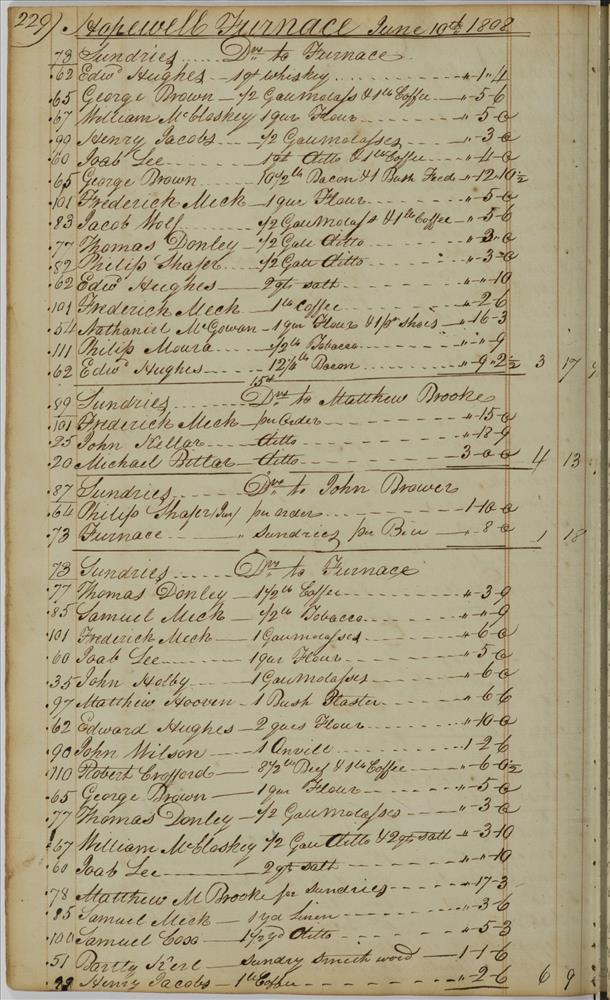 229) Hopewell Furnace June 10th 1808
73 Sundries Drs to Furnace
62 Edwd Hughes 1 qt Whiskey " 1 " 4
65 George Brown 1/2 Gall Molass & 1 lb Coffee " - 5 - 6
67 William McCloskey 1 qur Flour " - 5 - 0
90 Henry Jacobs 1/2 Gall Molasses " - 3 - 0
60 Joab Lee 1 qt Ditto & 1 lb Coffee " - 4 - 0
65 George Brown 10 1/2 lb Bacon & 1 Bush Feed " 12 - 10 1/2
101 Frederick Meck 1 qur Flour " - 5 - 0
83 Jacob Wolf 1/2 Gall Molass & 1 lb Coffee " - 5 - 6
77 Thomas Donley 1/2 Gall Ditto " 3 - 0
82 Philip Shafer 1/2 Gall Ditto " - 3 - 0
62 Edwd Hughes 2 qts salt " - " - 10
101 Frederick Meck 1 lb Coffee " - 2 - 6
54 Nathaniel McGowan 1 qur Flour & 1 pr Shoes " 16 - 3
111 Philip Moura 1/2 lb Tobacco " - " - 9
62 Edwd Hughes 12 1/4 lb Bacon " - 9 " 2 1/2 3 17
15th
89 Sundries Drs to Matthew Brooke
101 Frederick Meck per Order " - 15 - 0
25 John Kellar Ditto " - 18 - 9
20 Michael Bitlar Ditto 3 - 0 - 0 4 13
87 Sundries Drs to John Brower
64 Philip Shafer Jur per order 1 - 10 - 0
73 Furnace " Sundries per Bill " - 8 - 0 1 18
73 Sundries Drs to Furnace
77 Thomas Donley 1 1/2 lb Coffee " - 3 - 9
85 Samuel Meck 1/2 lb Tobacco " - " - 9
101 Frederick Meck 1 Gall molasses " - 6 - 0
60 Joab Lee 1 qur Flour " - 5 - 0
35 John Holby 1 Gall Molasses " - 6 - 0
97 Matthew Hooven 1 Bush Plaster " - 6 6
62 Edward Hughes 2 qurs Flour " - 10 - 0
90 John Wilson 1 Anvill 1 - 2 - 6
110 Robert Crofford 8 1/2 lb Beef & 1 lb Coffee " - 6 - 0 1/2
65 George Brown 1 qur Flour " - 5 - 0
77 Thomas Donley 1/2 Gall Molasses " - 3 - 0
67 William McCloskey 1/2 Gall Ditto & 2 qts salt " - 3 - 10
60 Joab Lee 2 qts salt " - " - 10
78 Matthew M Brooke for Sundries " - 17 - 3
85 Samuel Meck 1 yd Linen " - 3 - 6
100 Samuel Coxo 1 1/2 yd Ditto " - 5 - 3
51 Bartly Kerl sundry smith word 1 - 1 - 6
Henry Jacobs 1 lb Coffee " - 2 - 6 6 9